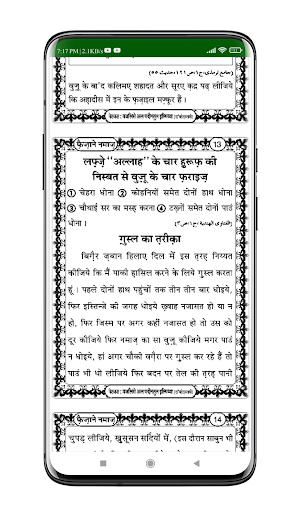 7:17 PM | 2.1KB/s
वुज़ू के बा'द कलिमए शहादत और सूरए क़द्र पढ़ लीजिये
कि अहादीस में इन के फ़ज़ाइल मज़्कूर हैं ।
फ़ैज़ाने नमाज़
13
लफ़्ज़े "अल्लाह" के चार हुरूफ़ की
निस्बत से वुज़ू के चार फ़राइज़
① चेहरा धोना ② कोहनियों समेत दोनों हाथ धोना
③ चौथाई सर का मस्ह करना ④ टख़्नों समेत दोनों पाउं
धोना ।
ग़ुस्ल का त़रीक़ा
बिग़ैर ज़बान हिलाए दिल में इस त़रह निय्यत
कीजिये कि मैं पाकी ह़ासिल करने के लिये ग़ुस्ल करता
हूं । पहले दोनों हाथ पहुंचों तक तीन तीन बार धोइये,
फिर इस्तिन्जे की जगह धोइये ख़्वाह नजासत हो या न
हो, फिर जिस्म पर अगर कहीं नजासत हो तो उस को
दूर कीजिये फिर नमाज़ का सा वुज़ू कीजिये मगर पाउं
न धोइये, हां अगर चौकी वग़ैरा पर ग़ुस्ल कर रहे हैं तो
पाउं भी धो लीजिये फिर बदन पर तेल की त़रह़ पानी
फ़ैज़ाने नमाज़
14
चुपड़ लीजिये, ख़ुसूसन सर्दियों में, (इस दौरान साबुन भी